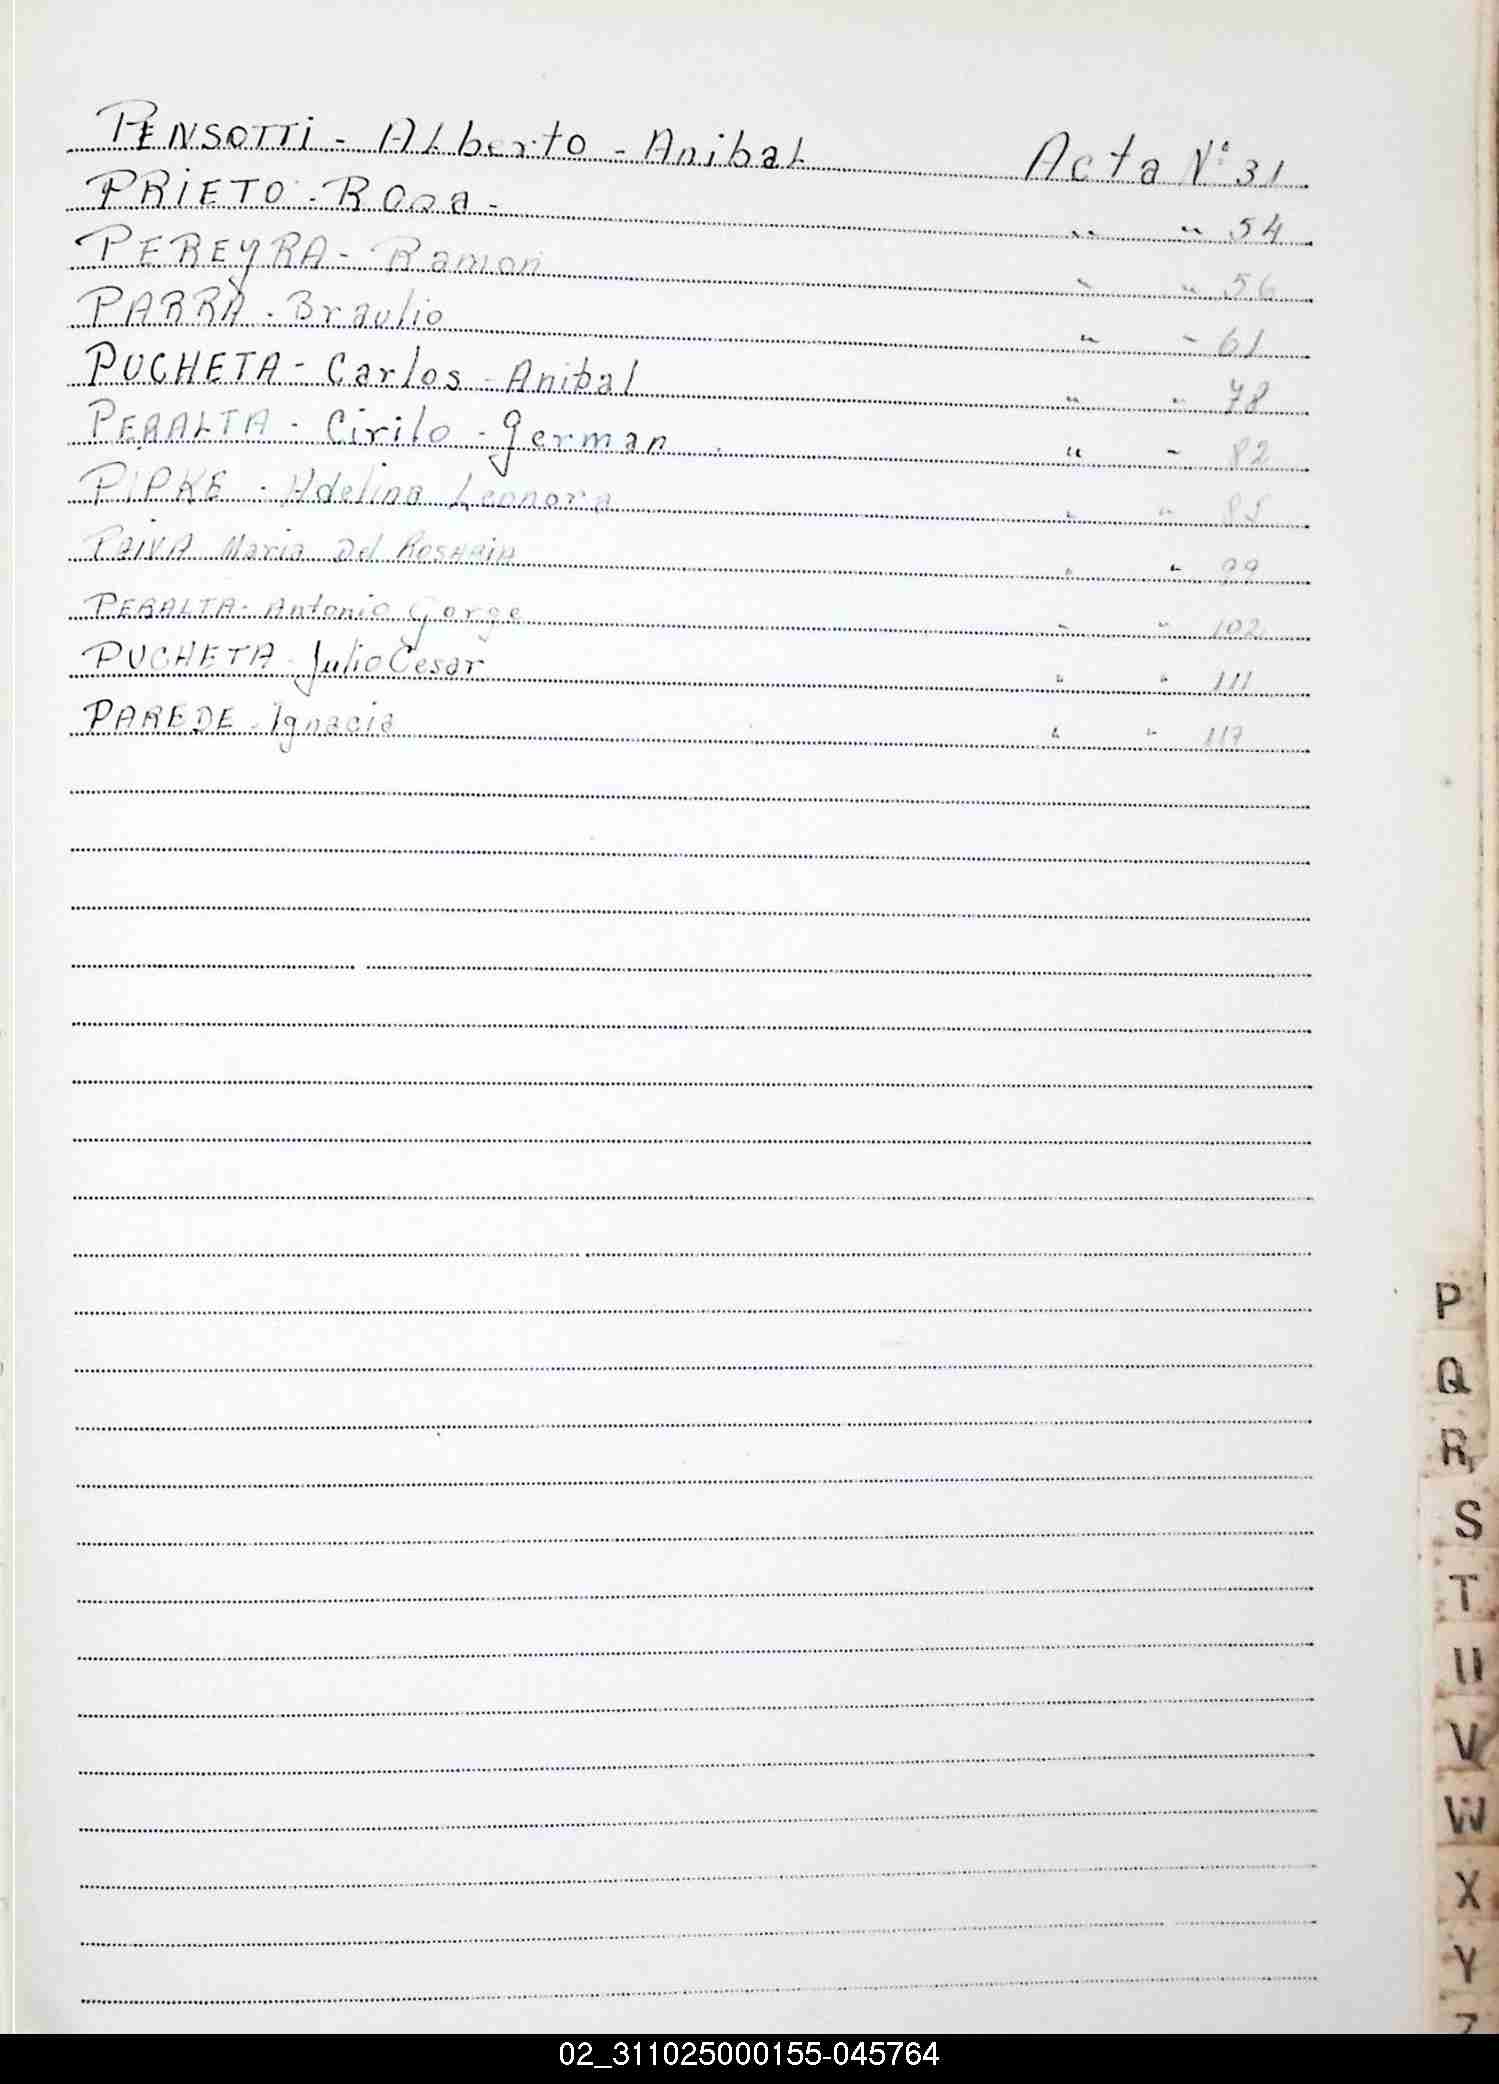 PENSOTTI - Alberto - Anibal Acta Nº 31
PRIETO - Rosa - " " 54
PEREYRA - Ramon " " 56
PARRA - Braulio " " 61
PUCHETA - Carlos - Anibal " " 78
PERALTA - Cirilo - German " " 82
PIPKE - Adelina Leonora " "
PAIVA Maria Del " " 99
PERALTA - Antonio Gorge " " 102
PUCHETA - Julio Cesar " " 111
PAREDE - Ignacia " " 117
P
Q
R
S
T
U
V
W
X
Y
Z
02_311025000155-045764